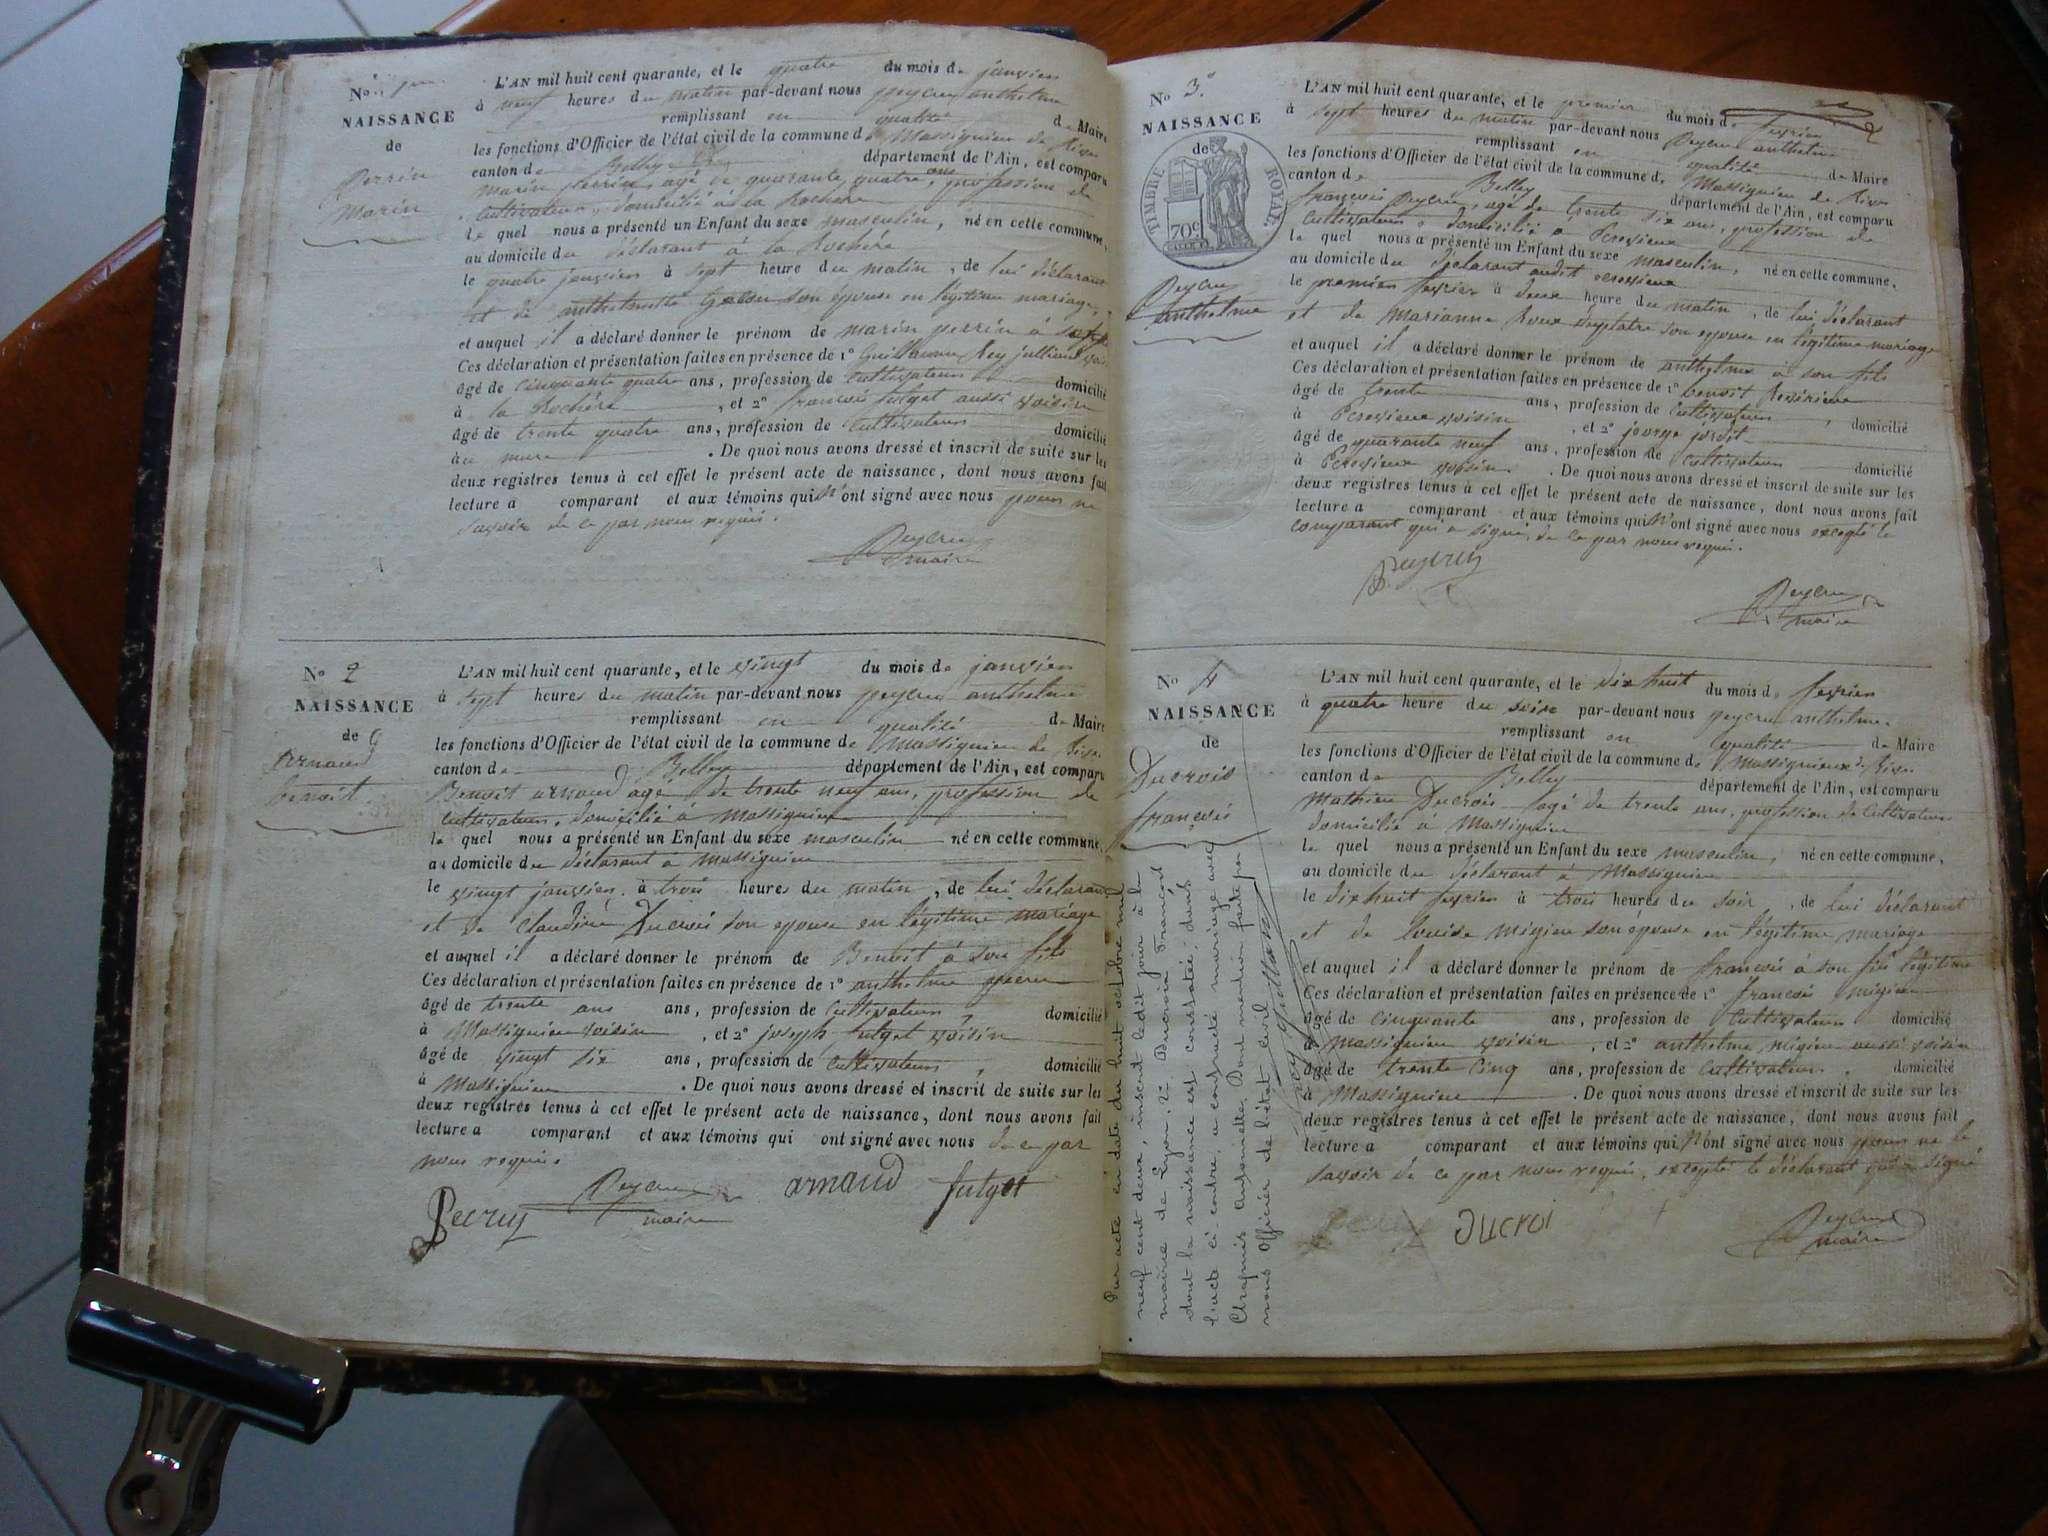 No un
NAISSANCE
de
Perrin
Marin
L'AN mil huit cent quarante, et le quatre du mois de janvier
à neuf heures du matin par-devant nous peycru anthelme
remplissant en qualité de Maire
les fonctions d'Officier de l'état civil de la commune de Massignieu de Rives
canton de Belley département de l'Ain, est comparu
marin perrin, agé de quarante quatre ans, profession de
Cultivateur, domicilié à la Rochére
le quel nous a présenté un Enfant du sexe masculin, né en cette commune,
au domicile du déclarant à la Rochére
le quatre janvier à sept heure du matin, de lui déclarant
et de anthelmette son épouse en légitime mariage,
et auquel il a déclaré donner le prénom de marin perrin à
Ces déclaration et présentation faites en présence de 1º Guillaume Rey
âgé de cinquante quatre ans, profession de Cultivateur domicilié
à la Rochére, et 2º francois fulget aussi voisin
âgé de trente quatre ans, profession de Cultivateur domicilié
au mure. De quoi nous avons dressé et inscrit de suite sur les
deux registres tenus à cet effet le présent acte de naissance, dont nous avons fait
lecture a comparant et aux témoins qui n'ont signé avec nous pour ne
savoir de ce par nous requis.
Peycru
maire
No 2
NAISSANCE
de
Arnaud
benoit.
L'AN mil huit cent quarante, et le vingt du mois de janvier
à sept heures du matin par-devant nous peycru anthelme
remplissant en qualité de Maire
les fonctions d'Officier de l'état civil de la commune de Massignieu de Rives
canton de Belley département de l'Ain, est comparu
Benoit arnaud agé de trente neuf ans, profession de
Cultivateur, domicilié à Massignieu
le quel nous a présenté un Enfant du sexe masculin né en cette commune,
au domicile du déclarant à Massignieu
le vingt janvier à trois heures du matin, de lui déclarant
et de Claudine Ducrois son epouse en légitime mariage
et auquel il a déclaré donner le prénom de Benoit à son fils
Ces déclaration et présentation faites en présence de 1º anthelme
âgé de trente ans ans, profession de Cultivateur, domicilié
à Massignieu voisin, et 2º joseph fulget voisin
âgé de vingt six ans, profession de Cultivateur, domicilié
à Massignieu. De quoi nous avons dressé et inscrit de suite sur les
deux registres tenus à cet effet le présent acte de naissance, dont nous avons fait
lecture a comparant et aux témoins qui ont signé avec nous de ce par
nous requis
Pecruy Peycru maire arnaud fulget
No 3.
NAISSANCE
de
TIMBRE ROYAL.
70c
Peycru
anthelme
L'AN mil huit cent quarante, et le premier du mois de fevrier
à sept heures du matin par-devant nous Peycru anthelme
remplissant en qualité de Maire
les fonctions d'Officier de l'état civil de la commune de Massignieu de Rives
canton de Belley département de l'Ain, est comparu
françois Peycru, agé de trente six ans, profession de
Cultivateur, domicilié à Ecrosieux
le quel nous a présenté un Enfant du sexe masculin, né en cette commune,
au domicile du déclarant audit
le premier fevrier à deux heure du matin, de lui déclarant
et de Marianne Roux son epouse en légitime mariage
et auquel il a déclaré donner le prénom de anthelme a son fils
Ces déclaration et présentation faites en présence de 1º benoit
âgé de trente ans, profession de Cultivateur, domicilié
à Ecrosieux voisin, et 2º jourge
âgé de quarante neuf ans, profession de Cultivateur domicilié
à Ecrosieux voisin. De quoi nous avons dressé et inscrit de suite sur les
deux registres tenus à cet effet le présent acte de naissance, dont nous avons fait
lecture a comparant et aux témoins qui n'ont signé avec nous excepté le
comparant qui a signé, de ce par nous requis.
Peycru
maire
No 4
NAISSANCE
de
Ducrois
françois
L'AN mil huit cent quarante, et le dix huit du mois de fevrier
à quatre heure du soir par-devant nous peycru anthelme.
remplissant en qualité de Maire
les fonctions d'Officier de l'état civil de la commune de Massignieux de Rives
canton de Belley département de l'Ain, est comparu
Mathieu Ducrois agé de trente ans, profession de Cultivateur
domicilié à Massignieu
le quel nous a présenté un Enfant du sexe masculin, né en cette commune,
au domicile du déclarant à Massignieu
le dixhuit fevrier à trois heures du soir, de lui déclarant
et de louise migieu son épouse en légitime mariage
et auquel il a déclaré donner le prénom de francois à son fils légitime
Ces déclaration et présentation faites en présence de 1º francois migieu
âgé de cinquante ans, profession de Cultivateur domicilié
à massignieu voisin, et 2º anthelme migieu aussi voisin
âgé de trente cinq ans, profession de Cultivateur. domicilié
à Massignieu. De quoi nous avons dressé et inscrit de suite sur les
deux registres tenus à cet effet le présent acte de naissance, dont nous avons fait
lecture a comparant et aux témoins qui n'ont signé avec nous pour ne le
savoir de ce par nous requis, excepté le déclarant qui a signé
Ducroi
Peycru
maire
Par acte en date du huit octobre mil
neuf cent deux, inscrit ledit jour à la
mairie de Lyon, 2e. Ducrois François
dont la naissance est constatée dans
l'acte ci contre, a contracté mariage avec
Dont mention faite par
nous Officier de l'état civil